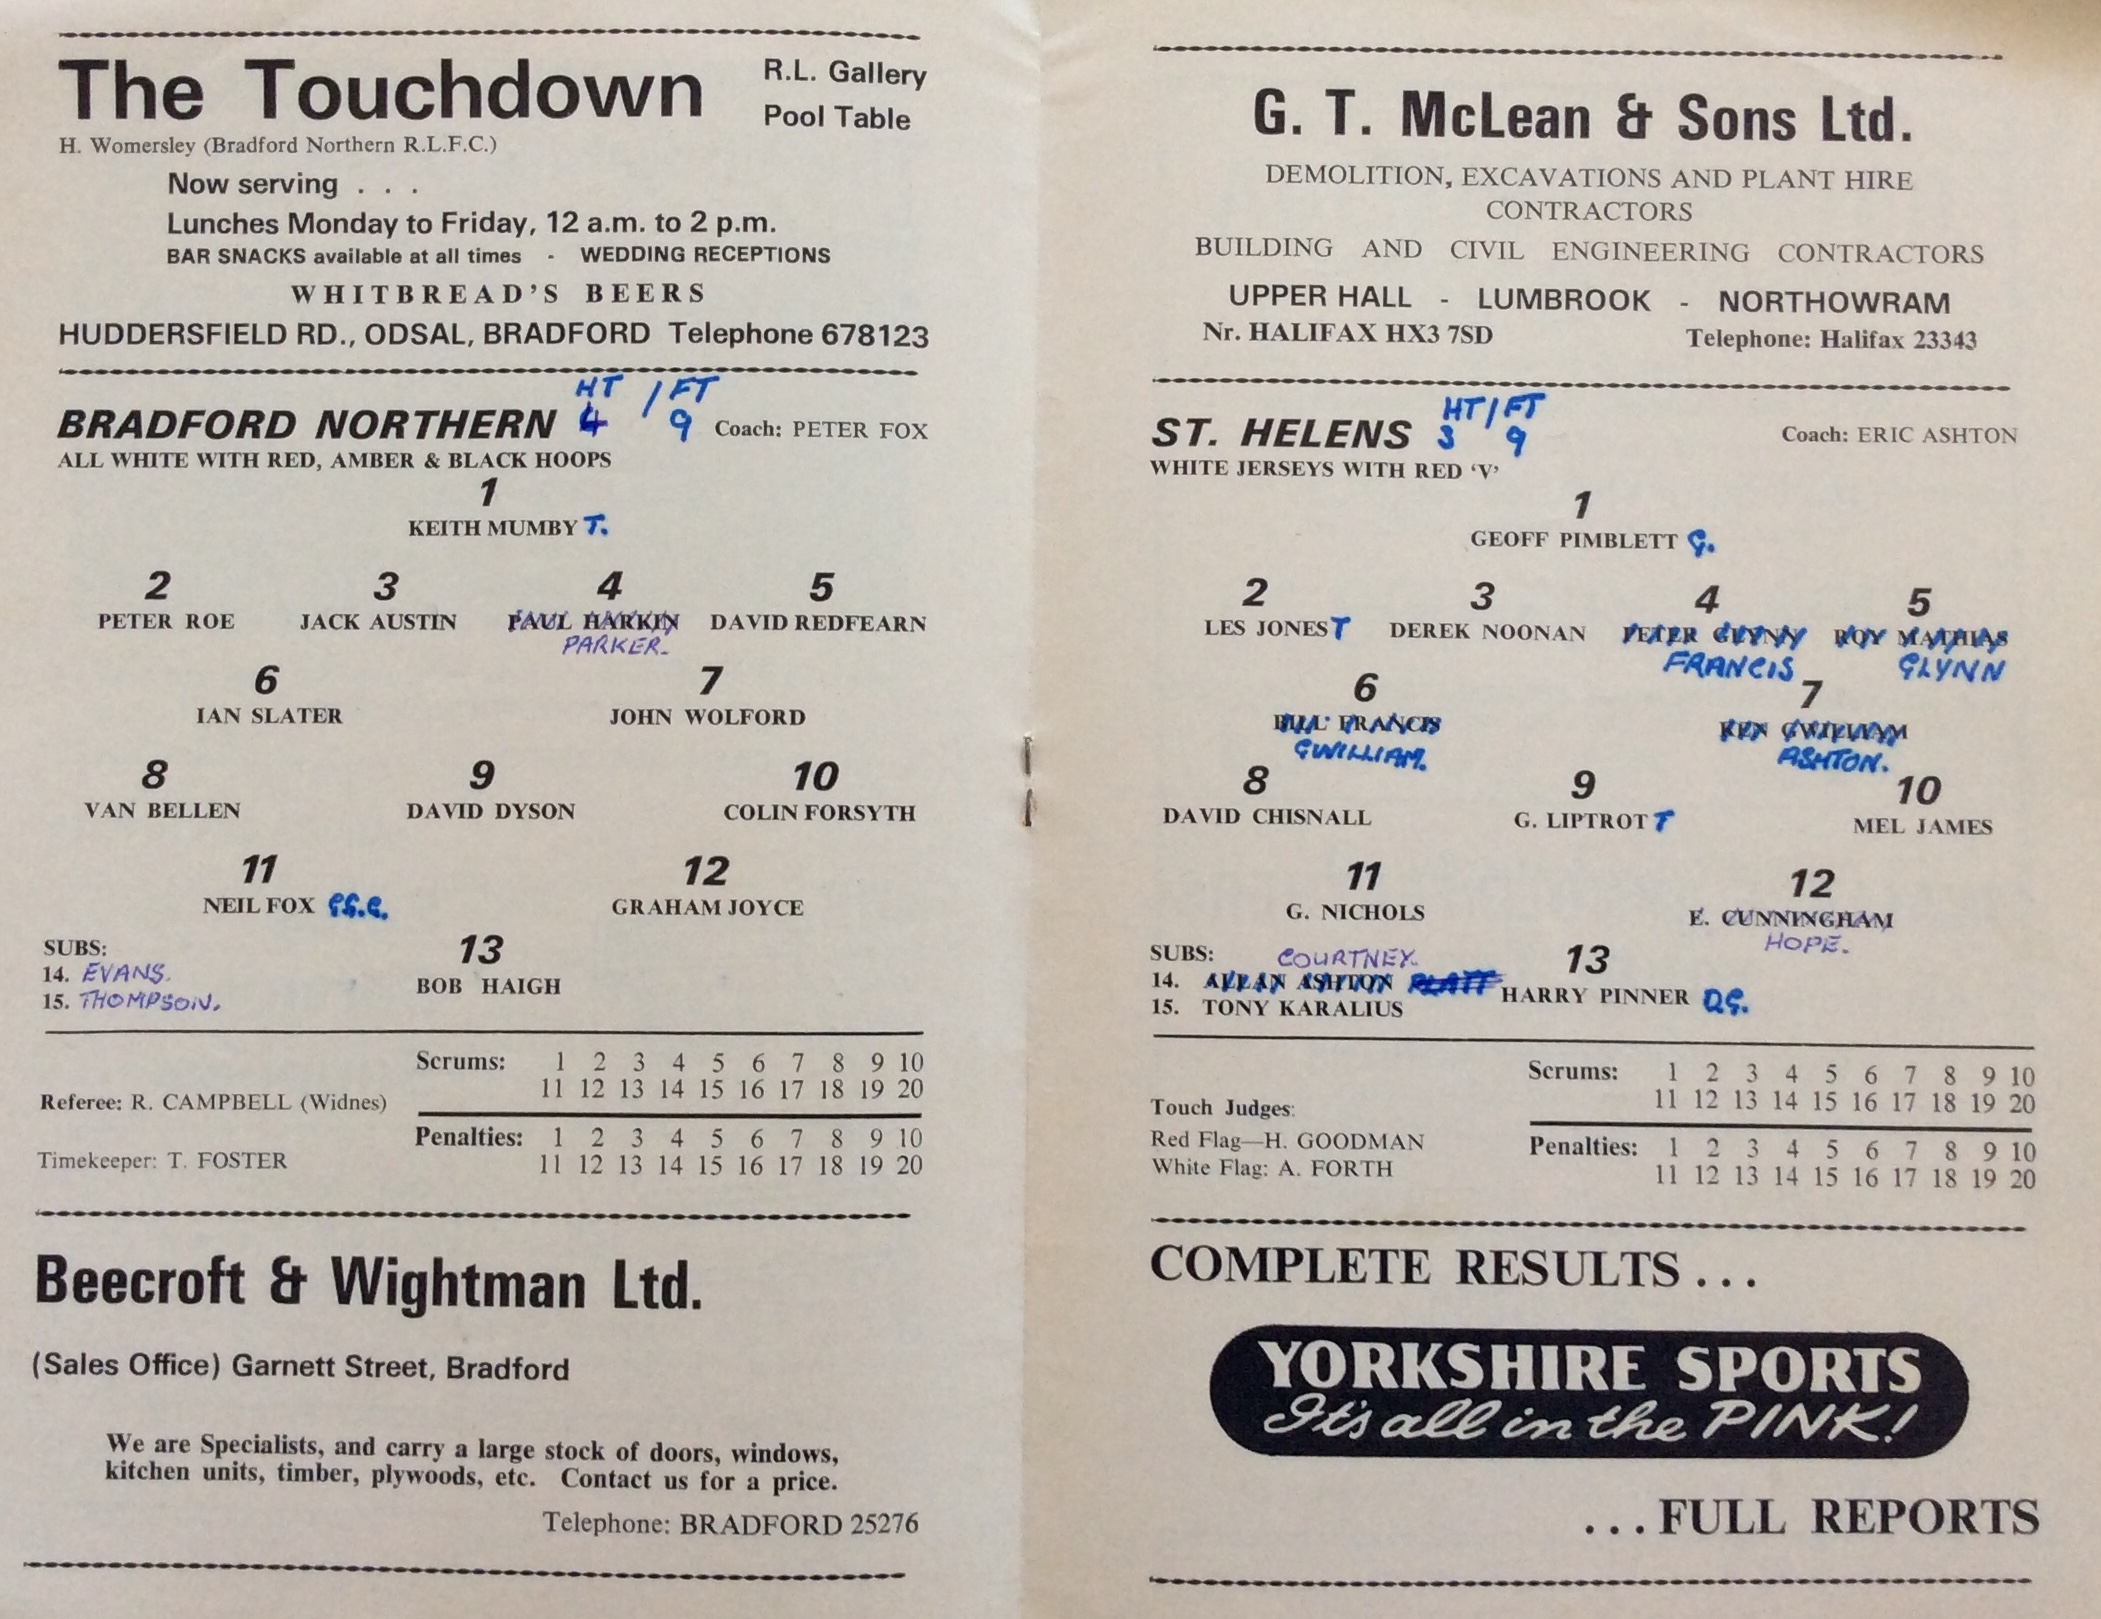 The Touchdown
R.L. Gallery
Pool Table
H. Womersley (Bradford Northern R.L.F.C.)
Now serving . . .
Lunches Monday to Friday, 12 a.m. to 2 p.m.
BAR SNACKS available at all times - WEDDING RECEPTIONS
WHITBREAD'S BEERS
HUDDERSFIELD RD., ODSAL, BRADFORD Telephone 678123
HT / FT
BRADFORD NORTHERN 4 9 Coach: PETER FOX
ALL WHITE WITH RED, AMBER & BLACK HOOPS
1
KEITH MUMBY T.
2 3 4 5
PETER ROE JACK AUSTIN PAUL HARKIN DAVID REDFEARN
PARKER.
6 7
IAN SLATER JOHN WOLFORD
8 9 10
VAN BELLEN DAVID DYSON COLIN FORSYTH
11 12
NEIL FOX G.G.G. GRAHAM JOYCE
SUBS: 13
14. EVANS. BOB HAIGH
15. THOMPSON.
Scrums: 1 2 3 4 5 6 7 8 9 10
11 12 13 14 15 16 17 18 19 20
Referee: R. CAMPBELL (Widnes)
Penalties: 1 2 3 4 5 6 7 8 9 10
11 12 13 14 15 16 17 18 19 20
Timekeeper: T. FOSTER
Beecroft & Wightman Ltd.
(Sales Office) Garnett Street, Bradford
We are Specialists, and carry a large stock of doors, windows,
kitchen units, timber, plywoods, etc. Contact us for a price.
Telephone: BRADFORD 25276
G. T. McLean & Sons Ltd.
DEMOLITION, EXCAVATIONS AND PLANT HIRE
CONTRACTORS
BUILDING AND CIVIL ENGINEERING CONTRACTORS
UPPER HALL - LUMBROOK - NORTHOWRAM
Nr. HALIFAX HX3 7SD Telephone: Halifax 23343
HT / FT
ST. HELENS 3 9 Coach: ERIC ASHTON
WHITE JERSEYS WITH RED ‘V’
1
GEOFF PIMBLETT G.
2 3 4 5
LES JONES T DEREK NOONAN PETER GLYNN ROY MATHIAS
FRANCIS GLYNN
6 7
BILL FRANCIS KEN GWILLIAM
GWILLIAM. ASHTON.
8 9 10
DAVID CHISNALL G. LIPTROT T MEL JAMES
11 12
G. NICHOLS E. CUNNINGHAM
HOPE.
SUBS: COURTNEY. 13
14. ALLAN ASHTON PLATT HARRY PINNER D.G.
15. TONY KARALIUS
Scrums: 1 2 3 4 5 6 7 8 9 10
11 12 13 14 15 16 17 18 19 20
Touch Judges:
Red Flag—H. GOODMAN
Penalties: 1 2 3 4 5 6 7 8 9 10
White Flag: A. FORTH
11 12 13 14 15 16 17 18 19 20
COMPLETE RESULTS . . .
YORKSHIRE SPORTS
It's all in the PINK!
. . . FULL REPORTS